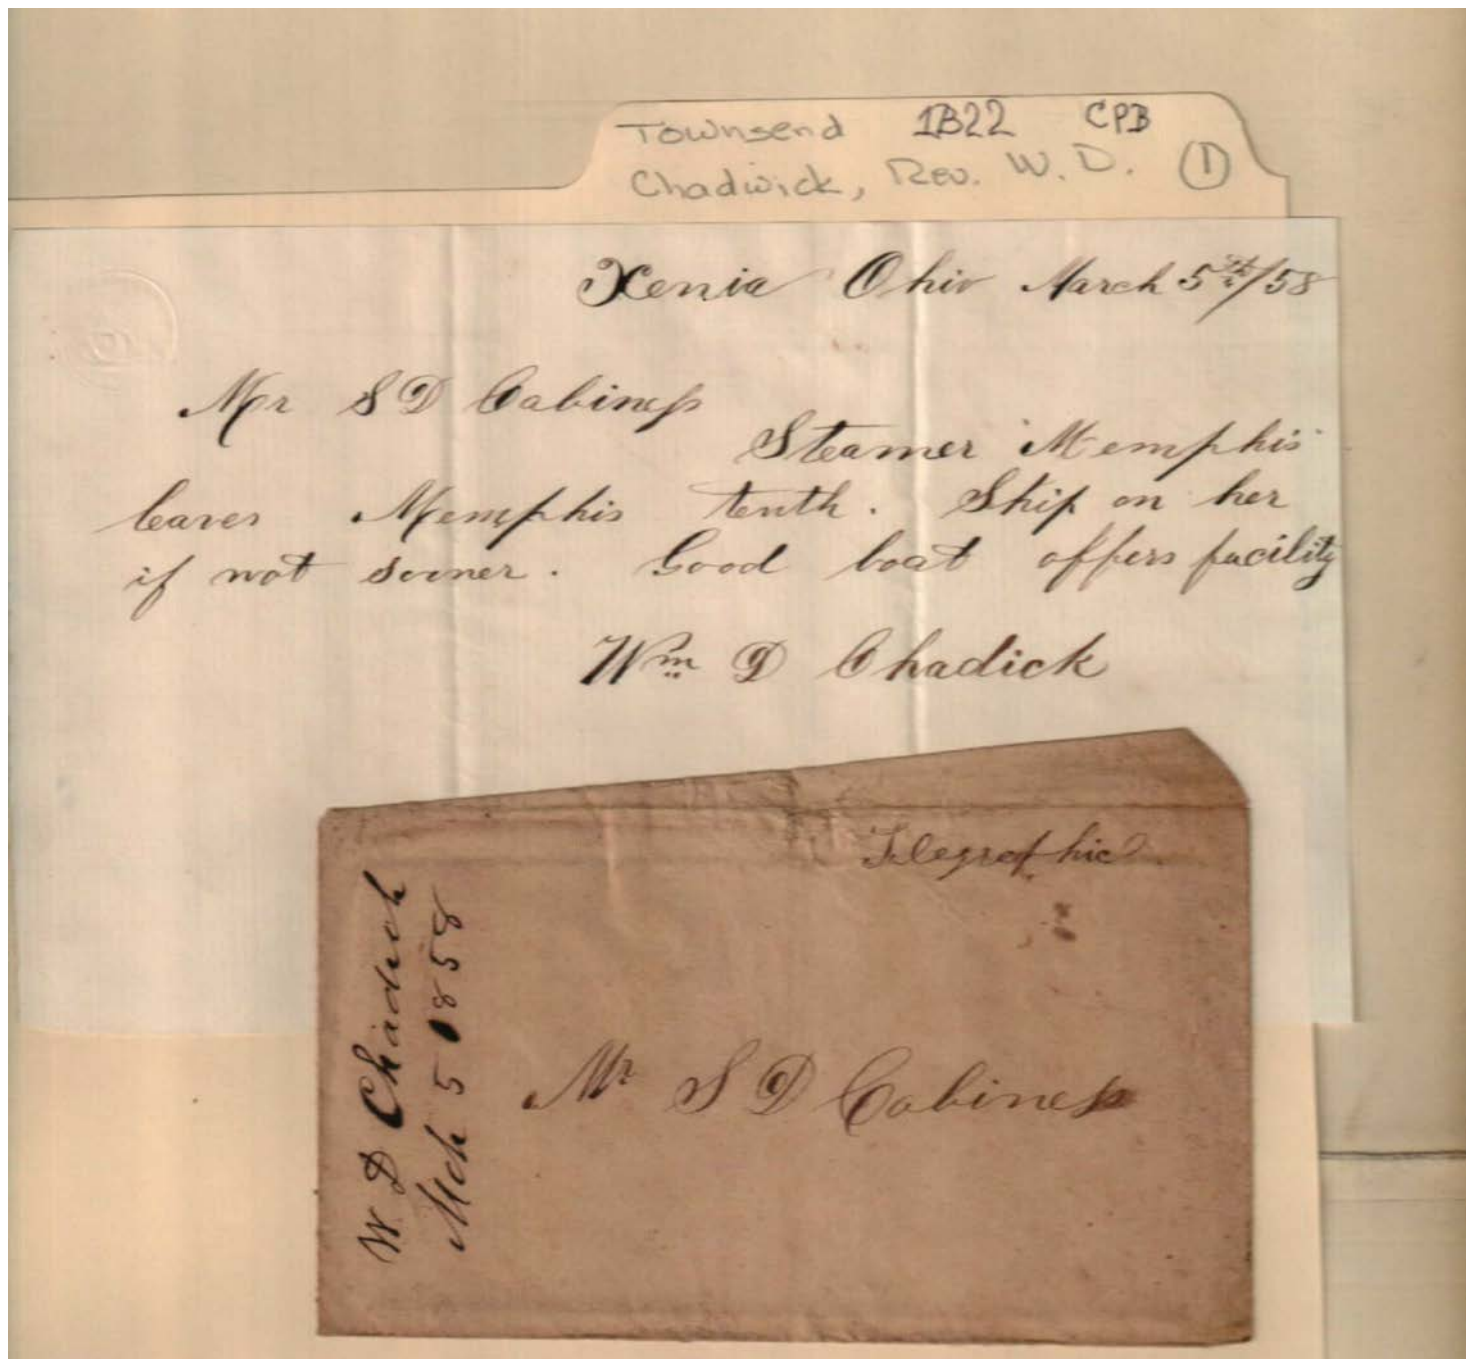 Townsend 1B22 CPB
Chadwick, Rev. W. D. 1
Xenia Ohio March 5th/58
Mr S D Cabiness
Steamer "Memphis"
leaves Memphis tenth. Ship on her
if not sooner. Good boat offers facility
Wm D Chadick
Telegraphic
W. D Chadick
Mch 5 1858
Mr S D Cabiness